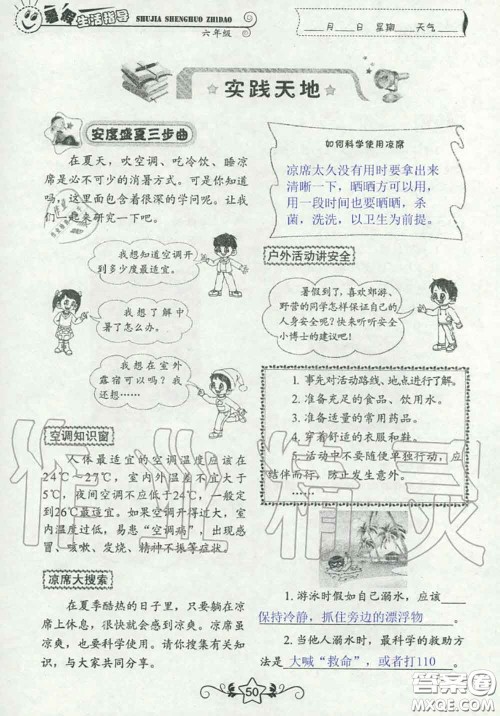 暑假生活指导
SHUJIA SHENGHUO ZHIDAO
六年级
月 日 星期 天气
实践天地
安度盛夏三步曲
在夏天，吹空调、吃冷饮、睡凉
席是必不可少的消暑方式。可是你知
吗，这里面包含着很深的学问呢。让我
们一起来研究一下吧。
我想知道空调开
到多少度最适宜。
我想了解中
暑了怎么办。
我想在室外
露宿可以吗？我
还想……
空调知识窗
人体最适宜的空调温度应该在
24℃—27℃，室内外温差不应大于
5℃，夜间空调不应低于24℃，一般定
到26℃最适宜。如果空调开得过大，室
内温度过低，易患“空调病”，出现感
冒、咳嗽、发烧、精神不振等症状。
凉席大搜索
在夏季酷热的日子里，只要躺在凉
席上休息，很快就会感到凉爽。凉席虽
凉爽，也要科学使用。请你搜集有关知
识，与大家共同分享。
如何科学使用凉席
凉席太久没有用时要拿出来
清晰一下，晒晒方可以用，
用一段时间也要晒晒，杀
菌，洗洗，以卫生为前提。
户外活动讲安全
暑假到了，喜欢郊游、
野营的同学怎样保证自己的
人身安全呢？快来听听安全
小博士的建议吧！
1. 事先对活动路线、地点进行了解。
2. 准备充足的食品、饮用水。
3. 准备适量的常用药品。
4. 穿着舒适的衣服和鞋。
5. 活动中不要随便单独行动，应
结伴而行，防止发生意外。
……
1. 游泳时假如自己溺水，应该
保持冷静，抓住旁边的漂浮物
2. 当他人溺水时，最科学的救助方
法是 大喊“救命”，或者打110 。
50
作业精灵
答案圈
MXQE.COM